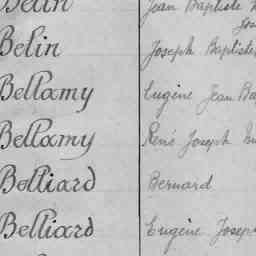 Belin Jean Baptiste
Belin Joseph Baptiste
Bellamy Eugène Jean Ba
Bellamy René Joseph
Belliard Bernard
Belliard Eugène Joseph